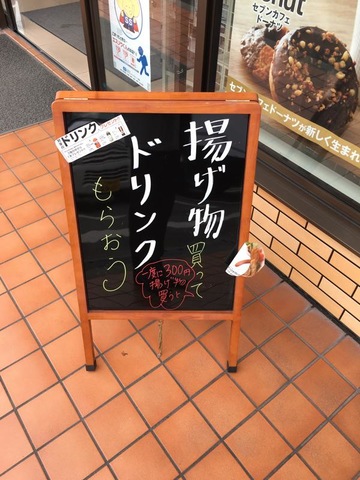 揚げ物
買って
ドリンク
もらおう
一度に300円
揚げ物
買うと
ドリンク
セブンカフェ
ドーナツ
セブンカフェドーナツが新しく生まれ